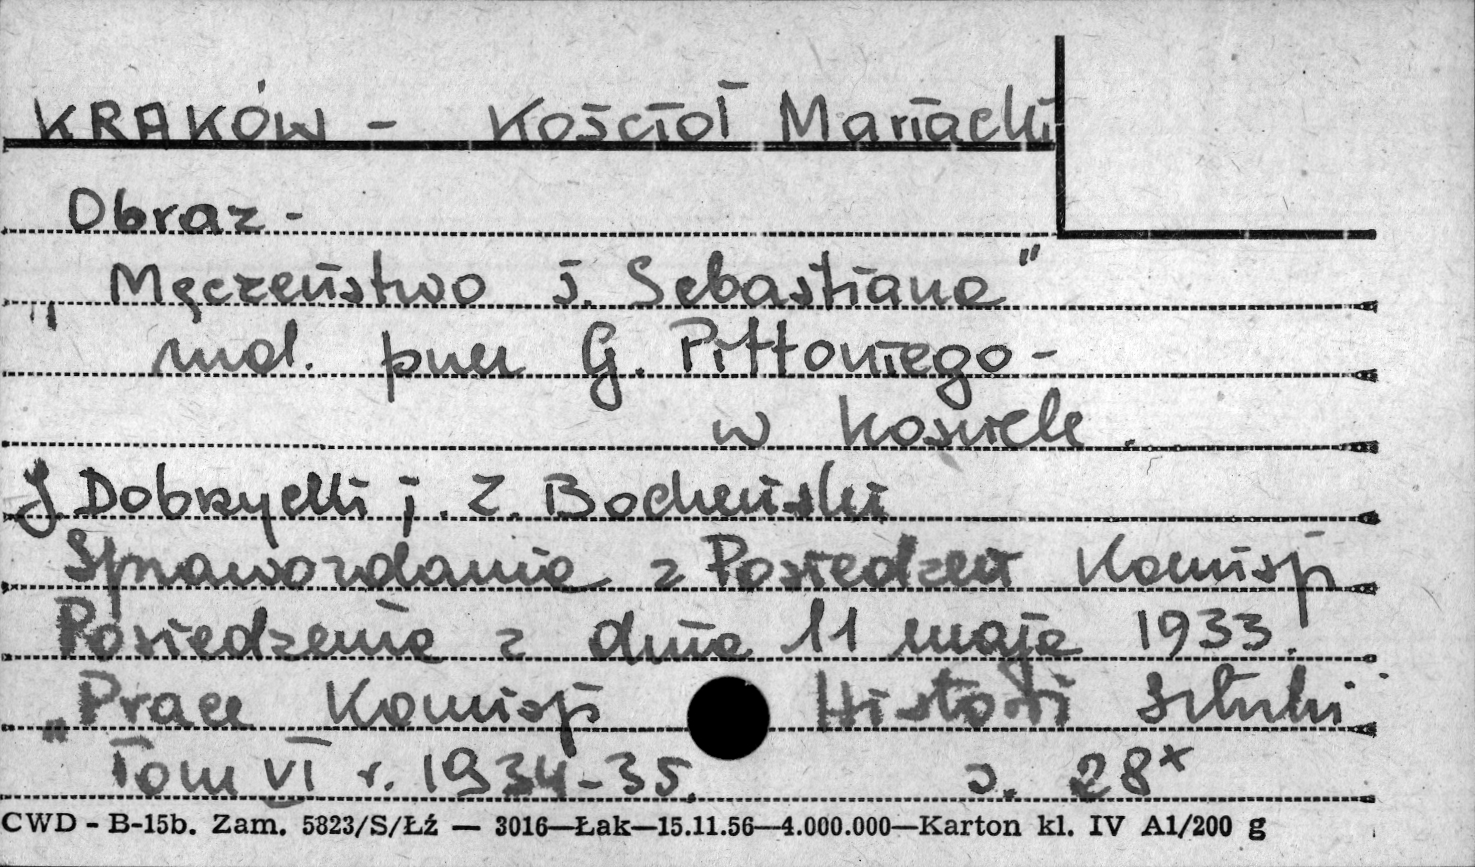 KRAKÓW - Kościoł Mariacki
Obraz -
„Męczeństwo ś. Sebastiana”
mal. przez G. Pittoniego -
w kościele.
J Dobrzycki j. Z. Bocheński
Sprawozdania z Posiedzeń Komisji
Posiedzenie z dnia 11 maja 1933.
„Prace Komisji Historji Sztuki
Tom VI r. 1934-35. s. 28*
CWD - B-15b. Zam. 5823/S/Łź — 3016—Łak—15.11.56—4.000.000—Karton kl. IV A1/200 g